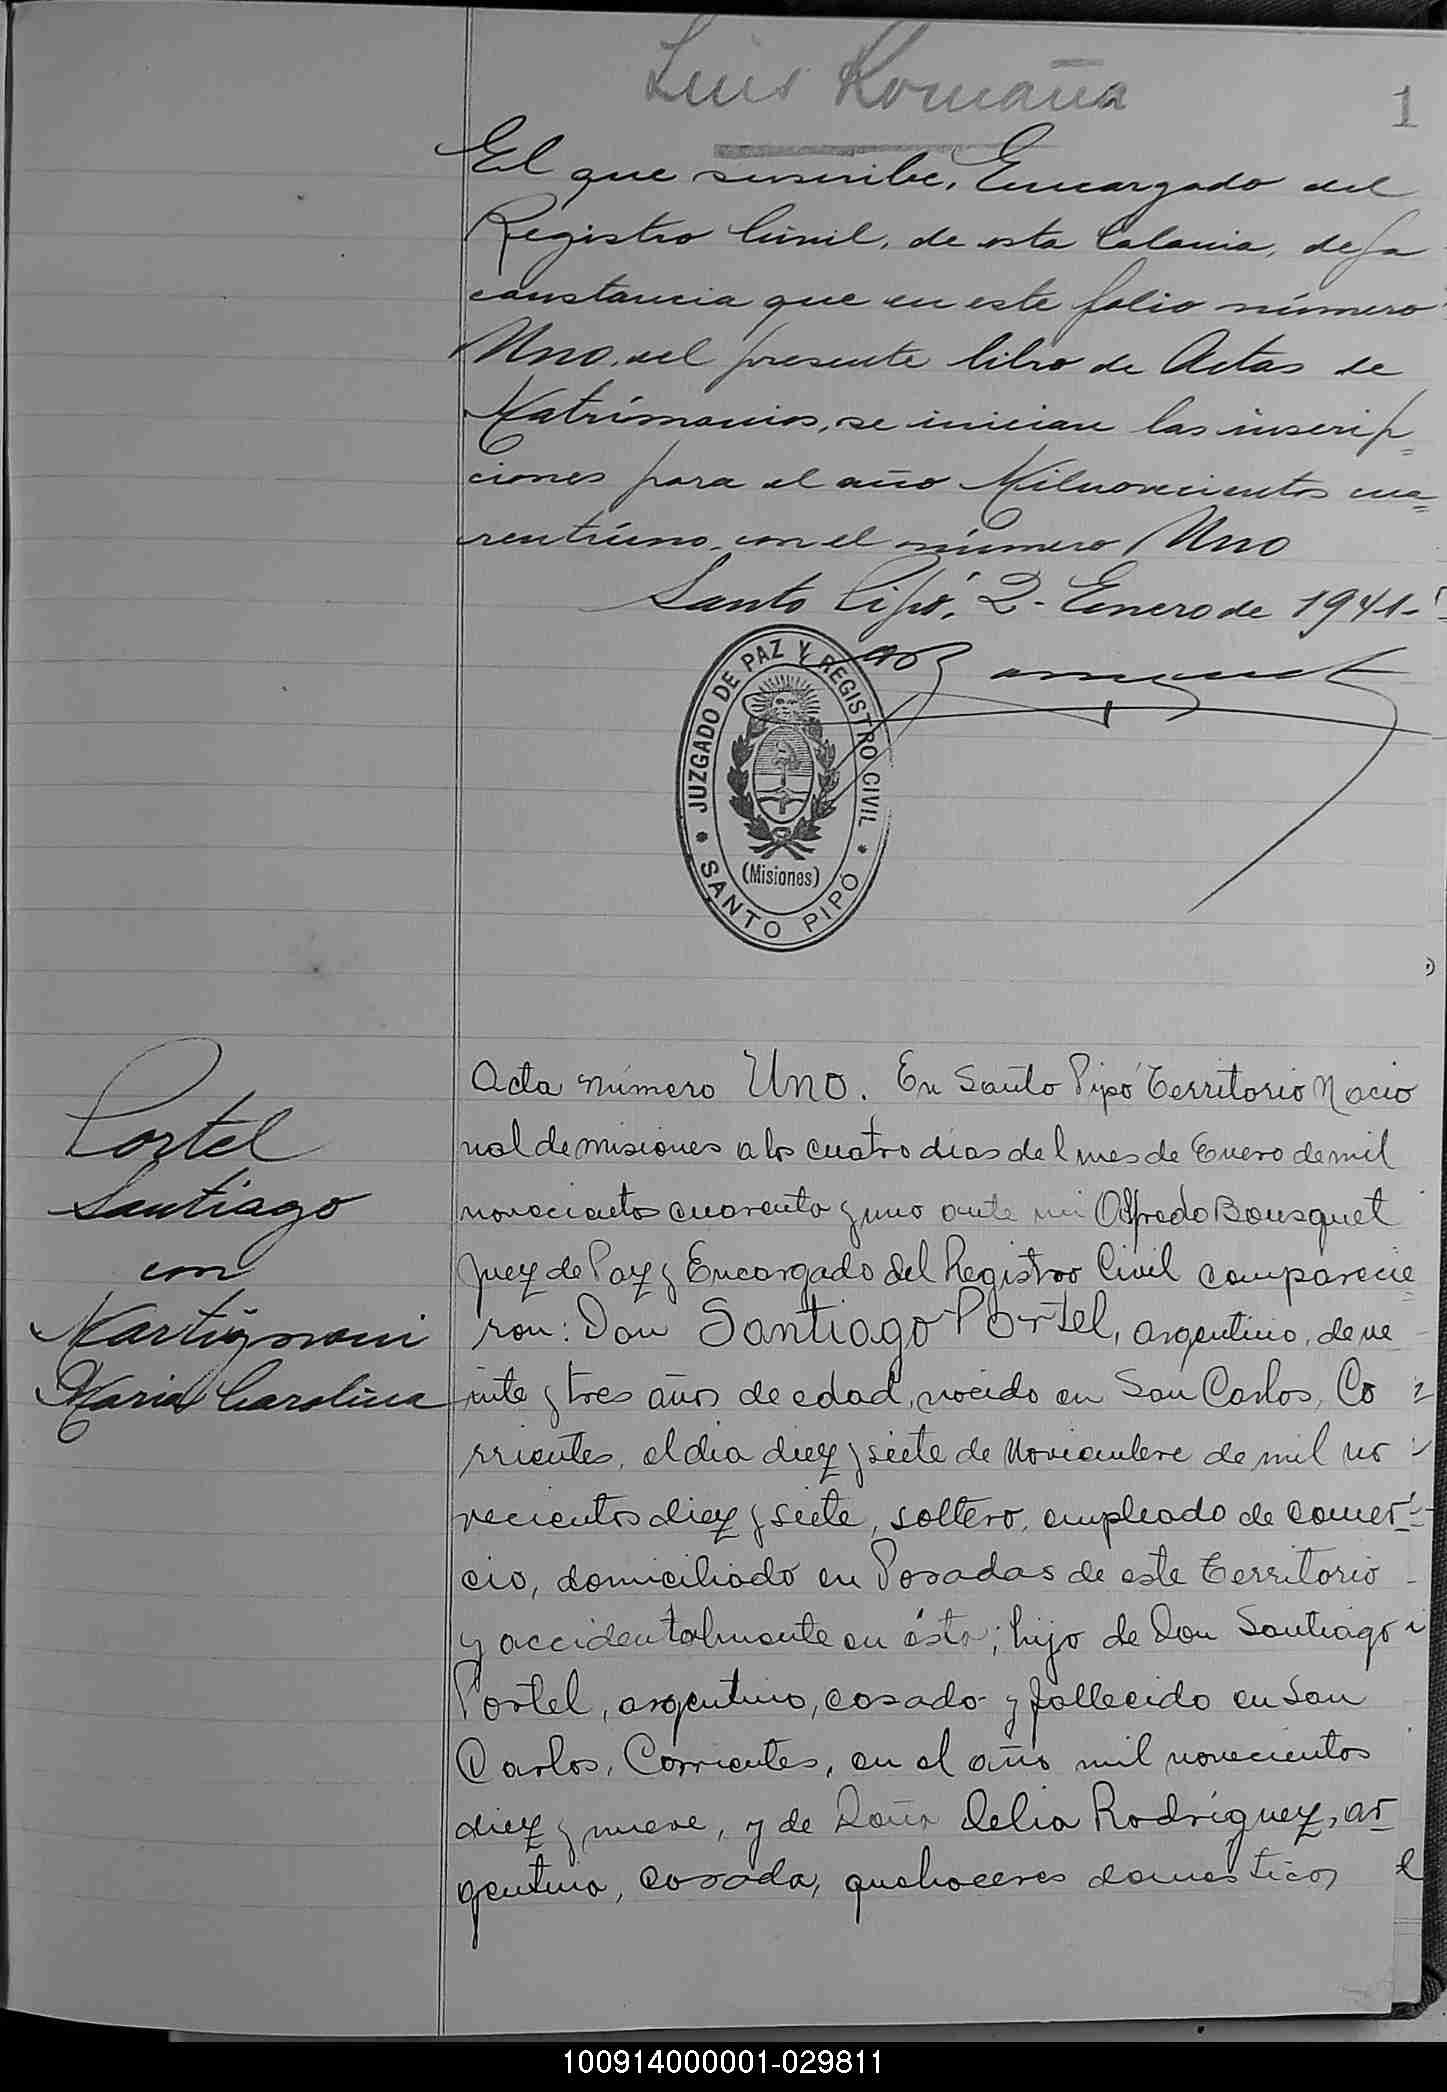 Luis Romaña
1
El que suscribe, Encargado del
Registro Civil, de esta Colonia, deja
constancia que en este folio número
Uno, del presente libro de Actas de
Matrimonios, se inician las inscrip=
ciones para el año Milnovecientos cua=
rentiuno, con el número Uno
Santo Pipó, 2 - Enero de 1941-
JUZGADO DE PAZ Y REGISTRO CIVIL
(Misiones)
SANTO PIPÓ
Portel
Santiago
con
Martignoni
Maria Carolina
Acta número Uno. En Santo Pipó Territorio Nacio
nal de misiones a los cuatro dias del mes de Enero de mil
novecientos cuarenta y uno ante mi Alfredo Bousquet
Juez de Paz y Encargado del Registro Civil comparecie
ron: Don Santiago Portel, argentino, de ve
inte y tres años de edad, nacido en San Carlos, Co
rrientes, el dia diez y siete de Noviembre de mil no
vecientos diez y siete, soltero, empleado de comer
cio, domiciliado en Posadas de este Territorio
y accidentalmente en ésta; hijo de Don Santiago
Portel, argentino, casado y fallecido en San
Carlos, Corrientes, en el año mil novecientos
diez y nueve, y de Doña Delia Rodríguez, ar
gentina, casada, quehaceres domesticos
100914000001-029811